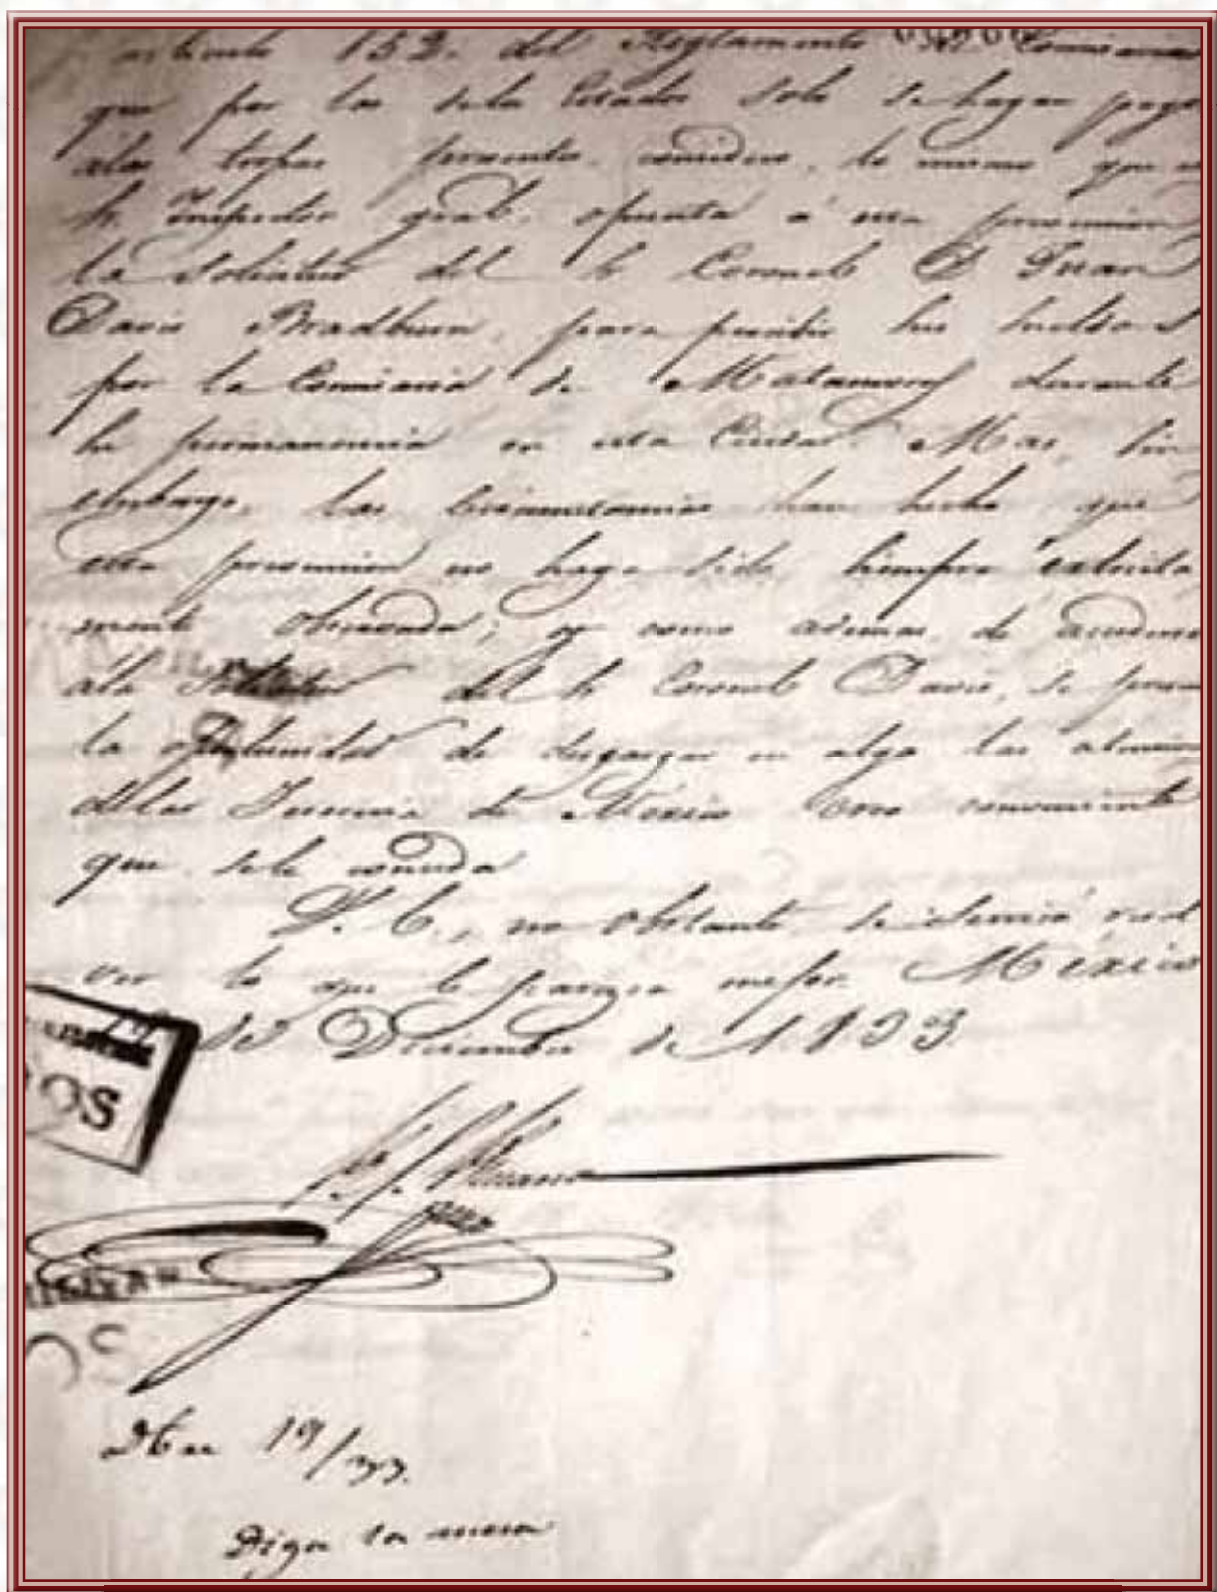 artículo 152. del Reglamento de Comisarias
que por las de los Estados solo se hagan pagos
á las tropas
Sr. Inspector gral. opuesta á esa prevencion
la solicitud del Sr Coronel D Juan
Davis Bradburn, para percibir sus sueldos
por la Comisaria de Matamoros durante
su permanencia en esta Ciudad. Mas, sin
embargo, las circunstancias han hecho que
esta prevencion no haya sido siempre extricta
mente observada; y como ademas, de
ála solicitud del Sr Coronel Davis, se
la oportunidad de en algo las
de la Tesoreria de Mexico creo conveniente
que se le conceda
V. E., no obstante se servirá resol
ver lo que le parezca mejor. Mexico
de Diciembre de 1833
OS
OS
Dbre 19/33.
Diga la mesa